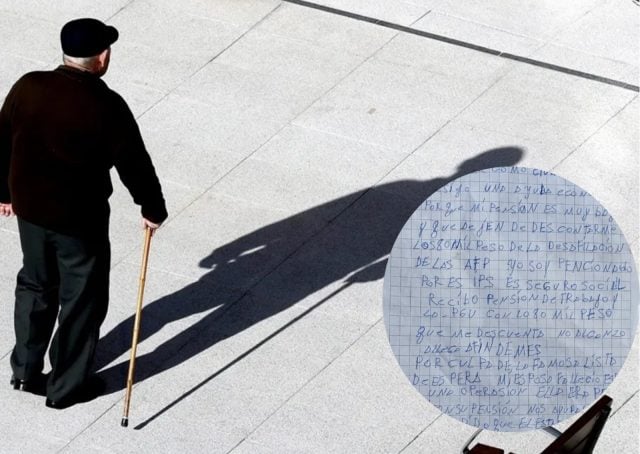 COMO
UNA AYUDA ECON
PORQUE MI PENSION ES MUY
Y QUE DEJEN DE DESCONTARME
LOS 80 MIL PESO DE LA DESAFILACION
DE LAS AFP YO SOY PENCIONADO
POR ES IPS ES SEGURO SOCIAL
RECIBO PENSION DE TRABAJO Y
CON LOS 80 MIL PESO
QUE ME DESCUENTA NO ALCANZO
FIN DE MES
POR CULPA DE LA FAMOSA LISTA
DE ESPERA MI ESPOSA FALLECIO E
UNA OPERASION ELLA ERA PE
SU PENSIÓN NOS
QUE EL